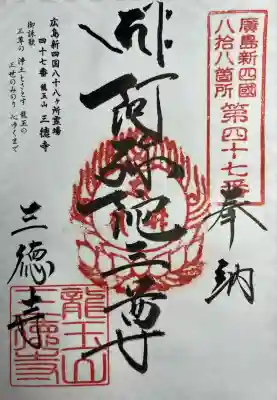 廣島新四國
八拾八箇所
第四十七番
奉納
阿弥陀三尊
広島新四国八十八ヶ所霊場
四十七番 龍王山 三徳寺
御詠歌
三尊の 浄土とさとす 龍王の
三世のみのり 心ゆくまで
三徳寺
龍王山
三徳寺